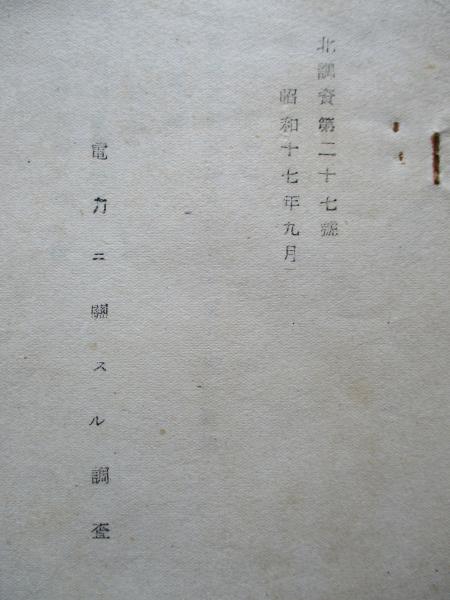 北調資第二十七號
昭和十七年九月
電力ニ關スル調査